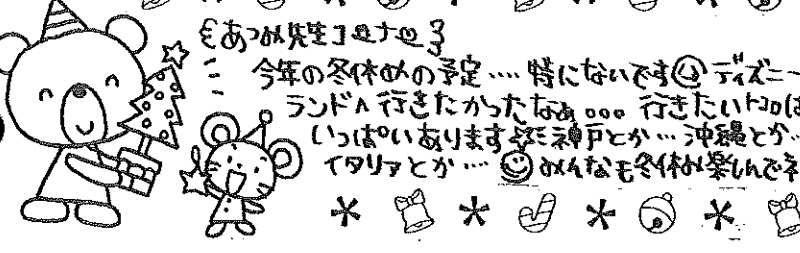 あつみ先生コーナー
今年の冬休みの予定‥‥特にないです☺ディズニー
ランドへ行きたかったなぁ。。。行きたいトコロは
いっぱいあります☆神戸とか…沖縄とか‥
イタリアとか…☺みんなも冬休み楽しんでネ